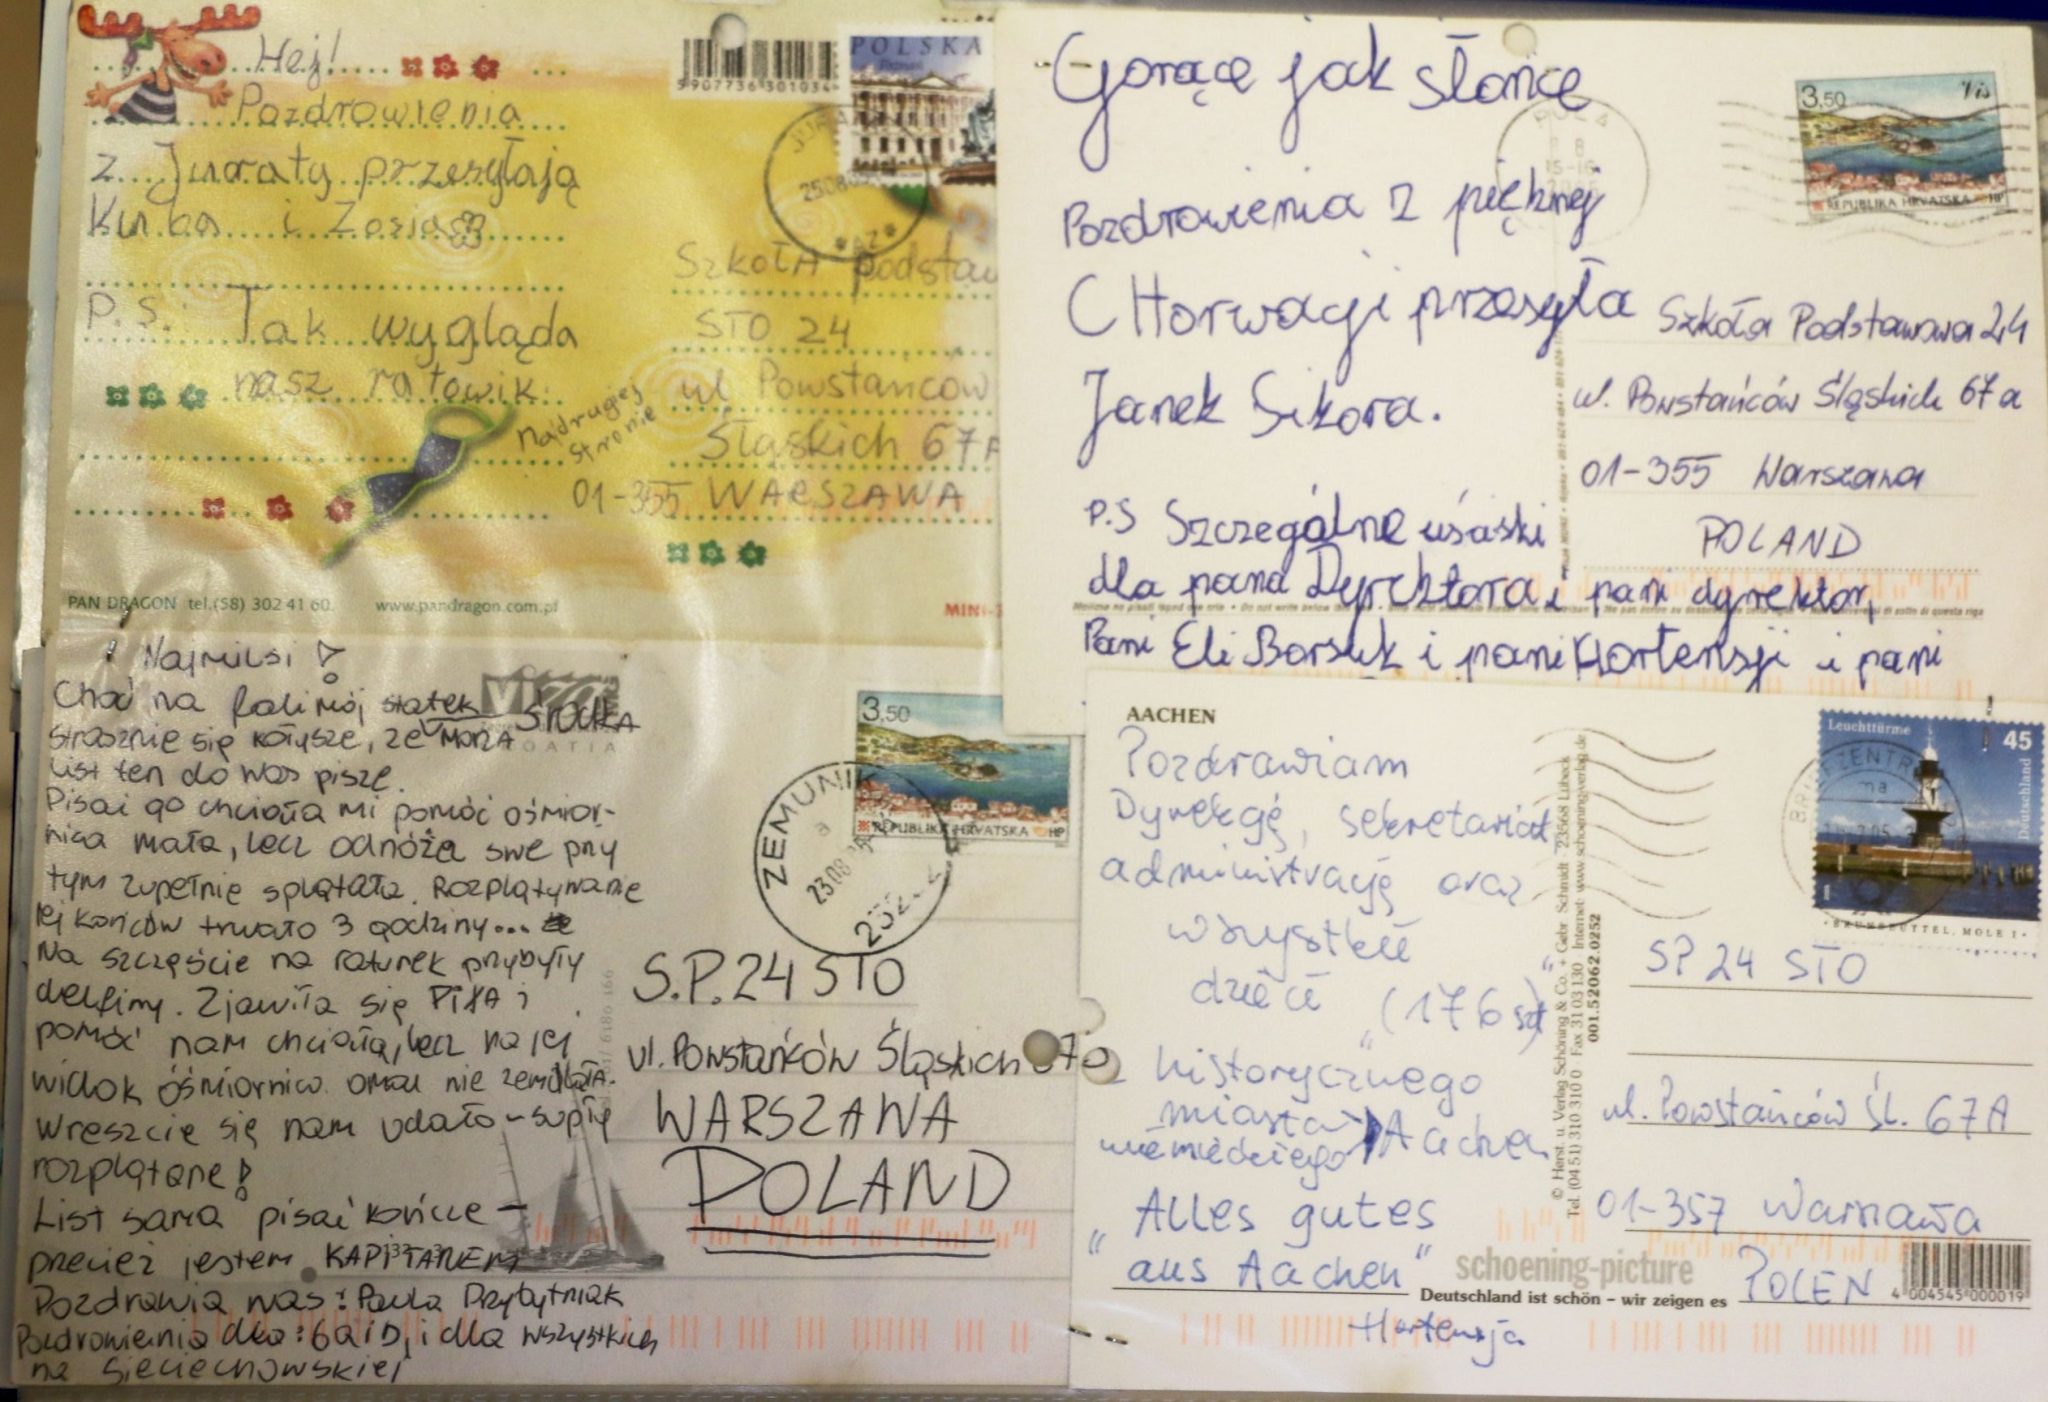 Hej!
Pozdrowienia
z Juraty przesyłają
Kuba i Zosia
P.S. Tak wygląda
nasz ratownik
Na drugiej
stronie
5907736301034
POLSKA
Poznań
25.08
Szkoła podstaw
STO 24
ul Powstańców
Śląskich 67A
01-355 WARSZAWA
PAN DRAGON tel.(58) 302 41 60. www.pandragon.com.pl
MINI-
Gorące jak słońce
Pozdrowienia z pięknej
CHorwacji przesyła
Janek Sikora.
P.S Szczególne uściski
dla pana Dyrektora i pani dyrektor,
Pani Eli Borsuk i pani Hortensji i pani
PULA
15-16
3,50 Vis
REPUBLIKA HRVATSKA HP
Szkoła Podstawowa 24
ul. Powstańców Śląskich 67a
01-355 Warszawa
POLAND
Najmilsi!
Choć na fali mój statek
strasznie się kołysze, ze środka morza
list ten do was piszę.
Pisać go chciała mi pomóc ośmior-
nica mała, lecz odnóża swe przy
tym zupełnie splątała. Rozplątywanie
jej końców trwało 3 godziny...
Na szczęście na ratunek przybyły
delfiny. Zjawiła się PIŁA i
pomóc nam chciała, lecz na jej
widok ośmiornica omal nie zemdlała.
Wreszcie się nam udało - supły
rozplątane!
List sama pisać kończę -
przecież jestem KAPITANEM
Pozdrawia was: Paula Przybytniak
Pozdrowienia dla: 6a i D, i dla wszystkich
na Sieciechowskiej
CROATIA
3,50
REPUBLIKA HRVATSKA HP
ZEMUNIK
23.08
S.P. 24 STO
ul. Powstańców Śląskich 67a
WARSZAWA
POLAND
AACHEN
Pozdrawiam
Dyrekcję, sekretariat
administrację oraz
wszystkie
dzieci (176 szt)
z historycznego
miasta
niemieckiego Aachen
"Alles gutes
aus Aachen"
Hortensja
© Herst. u. Verlag Schöning & Co. + Gebr. Schmidt 23568 Lübeck
Tel. (04 51) 310 310 0 Fax 31 03 130 Internet: www.schoeningverlag.de
001.52062.0252
Leuchttürme
45
Deutschland
BRUNSBÜTTEL, MOLE 1
BRIEFZENTRUM
SP 24 STO
ul. Powstańców Śl. 67A
01-357 Warszawa
POLEN
schoening-picture
Deutschland ist schön – wir zeigen es
4 004545 000019